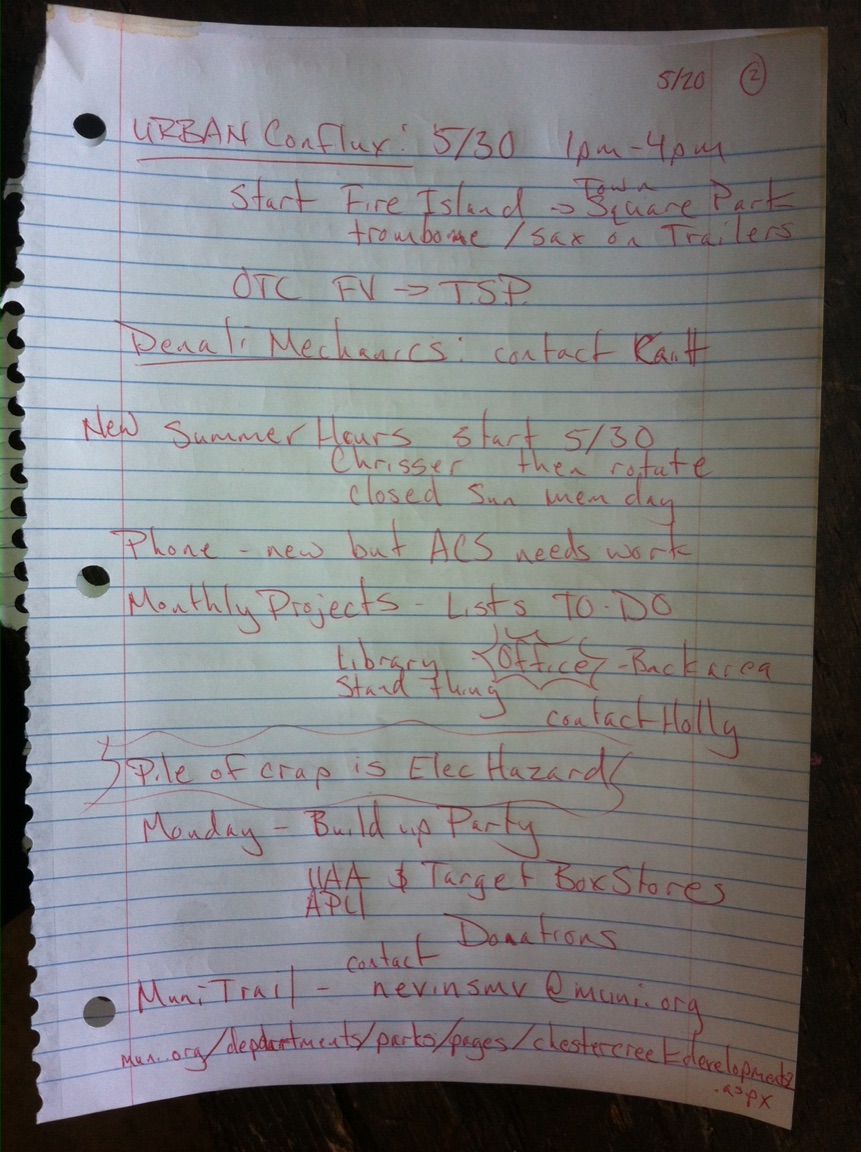 5/20 2
URBAN Conflux: 5/30 1pm-4pm
Start Fire Island → Town Square Park
trombone / sax on Trailers
OTC FV → T.S.P.
Denali Mechanics: contact
New Summer Hours start 5/30
Chrisser then rotate
closed Sun mem day
Phone - new but ACS needs work
Monthly Projects - Lists TO-DO
Library Office - Back area
Stand thing
contact Holly
Pile of crap is Elec Hazard
Monday - Build up Party
UAA $ Target Box Stores
APU
Donations
contact
Muni Trail - nevinsmv@muni.org
muni.org/departments/parks/pages/chestercreekdevelopments
.aspx